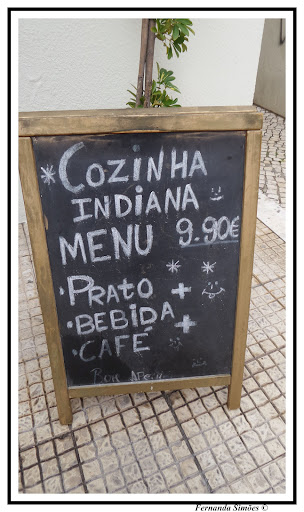 COZINHA
INDIANA
MENU 9.90€
·PRATO +
·BEBIDA +
·CAFÉ
Fernanda Simões ©